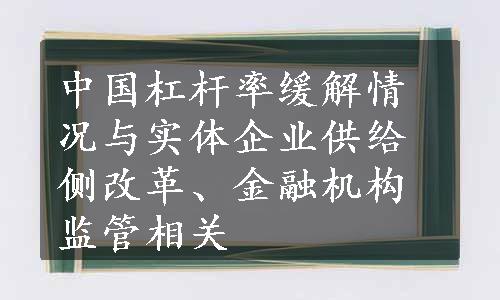 中国杠杆率缓解情
况与实体企业供给
侧改革、金融机构
监管相关